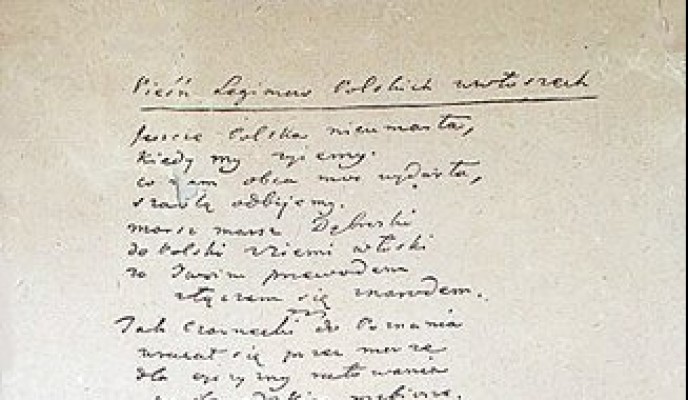 Pieśń Legionów Polskich we Włoszech
Jeszcze Polska nieumarła,
kiedy my żyiemy.
co nam obca moc wydarła,
szablą odbijemy.
marsz marsz Dąbrwski
do Polski z ziemi włoski
za Twoim przewodem
złączem się z narodem.
Jak Czarnecki do Poznania
wracał się przez morze
dla oyczyzny ratowania